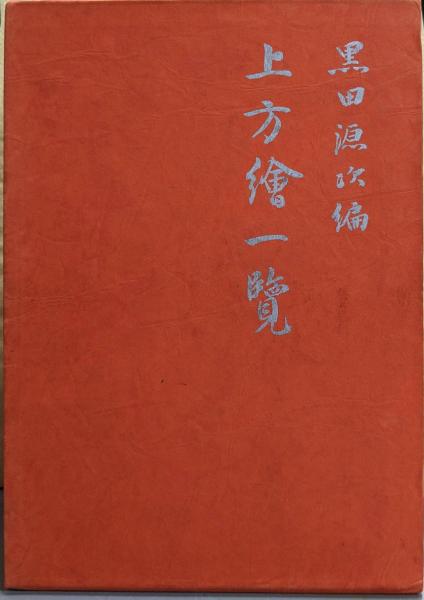 黒田源次編
上方繪一覽